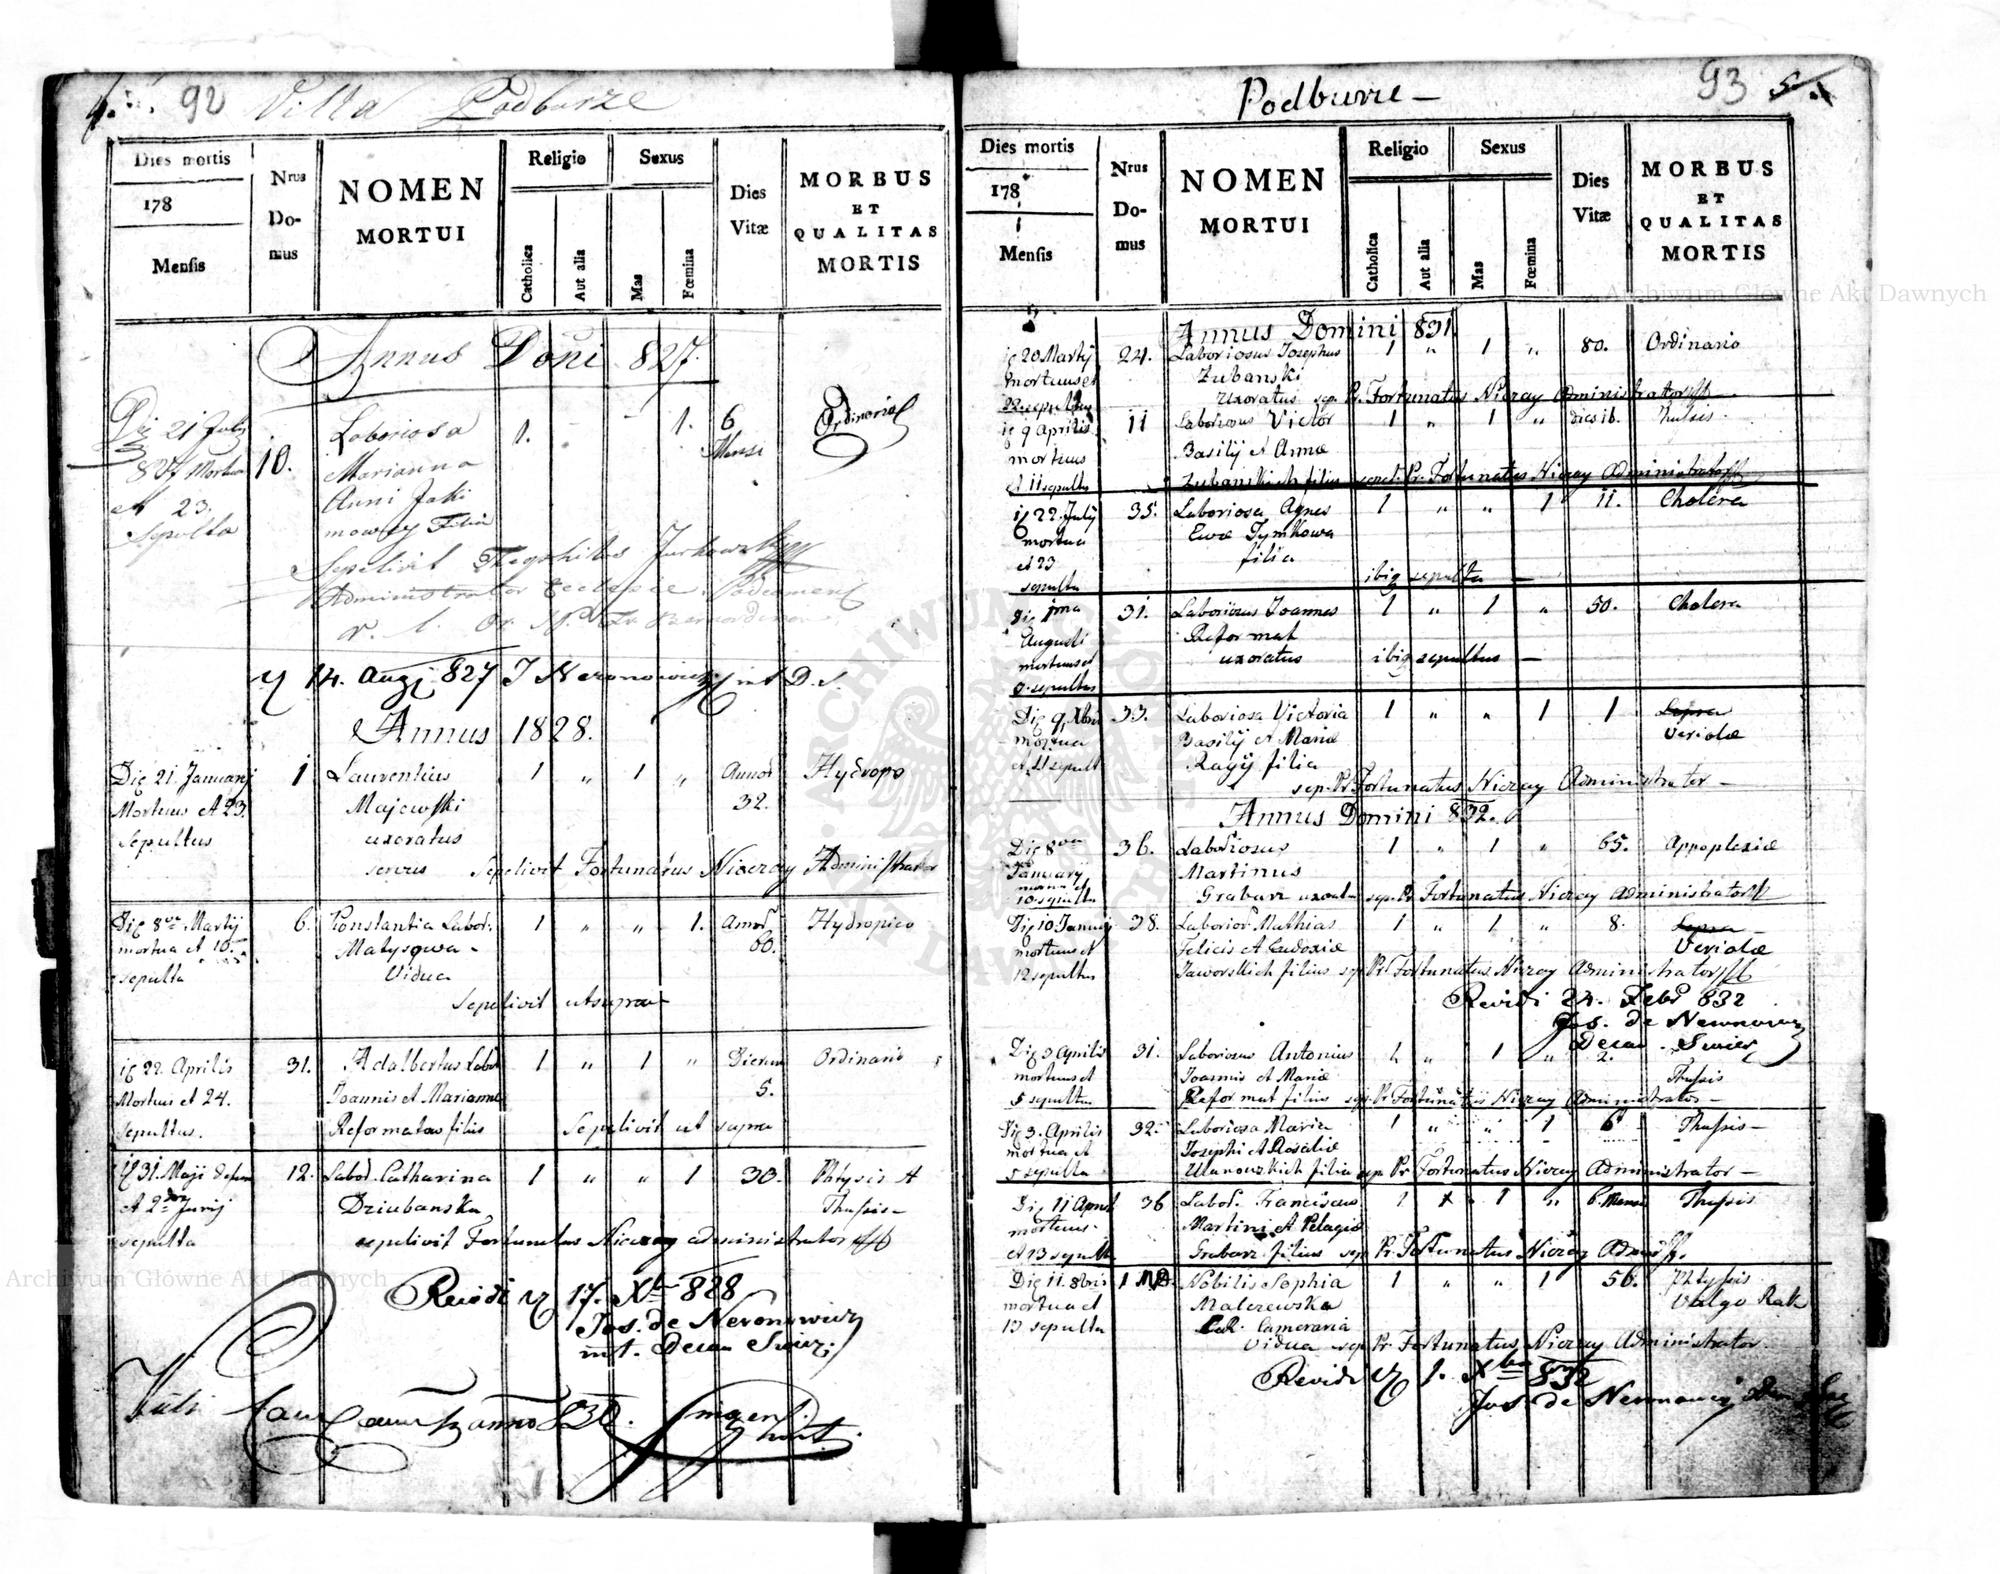 92 Villa Podburze
Dies mortis
178
Mensis
Nrus Do- mus
NOMEN
MORTUI
Religio
Catholica
Aut alia
Sexus
Mas
Fœmina
Dies
Vitæ
MORBUS
ET
QUALITAS
MORTIS
Annus Doni 827.
Die 21 July 10. Laboriosa 1. 1. 6 Ordinaria
827 Mortua Marianna Mensi
et 23. Anni Jaki
Sepulta mowey Filia
Sepelivit Theophilus
Administrator Ecclesiæ
14. Aug 827 J Neronowicz mt D. S.
Annus 1828.
Die 21. Januarij 1 Laurentius 1 „ 1 „ Annor Hydrops
Mortuus et 23. Majewski 32.
Sepultus uxoratus
Sepelivit Fortunatus Niezay Administrator
Die 8va Martij 6. Konstantia Labor. 1 „ „ 1. Annor Hydropico
mortua et 10 Matysowa 60.
sepulta Vidua
Sepelivit ut supra
22 Aprilis 31. Adalbertus Labor 1 „ 1 „ Dierum Ordinario
Mortuus et 24. Joannis et Marianna 5.
Sepultus. Reformatow filius Sepelivit ut supra
31. Maji 12. Labor. Catharina 1 „ „ 1 30. Phtysis et
et 2da Junij Dziubanska Thussis
sepulta sepelivit Fortunatus Niezay administrator
Revidi 17. Xbr 828
Jos. de Neronowicz
mt. Decan
anno 830.
Podburze
93
Dies mortis
178
Mensis
Nrus Do- mus
NOMEN
MORTUI
Religio
Catholica
Aut alia
Sexus
Mas
Fœmina
Dies
Vitæ
MORBUS
ET
QUALITAS
MORTIS
Annus Domini 831
20 Martij 24. Laboriosus Josephus 1 „ 1 „ 80. Ordinario
mortuus et Zubanski
sepultus Uxoratus sep. Pr. Fortunatus Niezay Administrator
9 Aprilis 11 Laboriosus Victor 1 „ 1 „ dies 16. Thussis
mortuus Basilij et Annæ
et 11 sepultus Zubanskich filius sepel. Pr. Fortunatus Niezay Administrator
22 July 35. Laboriosa Agnes 1 „ „ 1 11. Cholera
mortua Evæ Tymkowa
et 23 filia
sepulta ibig sepulta
Die 1ma 31. Laboriosus Joannes 1 „ 1 „ 50. Cholera
Augusti Reformat
mortuus et uxoratus ibig sepultus
sepultus
Die 9 Xbris 33. Laboriosa Victoria 1 „ „ 1 1 Lepra
mortua Basilij et Mariæ Veriolæ
et 11 sepult Ragij filia
sep. Pr Fortunatus Niezay Administrator
Annus Domini 832.
Die 8va 36. Laboriosus 1 „ 1 „ 65. Appoplexiæ
January Martinus
10 sepultus Grabarz uxorat sep. Pr Fortunatus Niezay Administrator
Die 10 January 38. Laborios Mathias 1 „ 1 „ 8. Lepra
mortuus et Felicis et Eudoxiæ Veriolæ
12 sepultus Jaworskich filius sep Pr Fortunatus Niezay Administrator
Revidi 24. Febr 832
Jos. de Neronowicz
Decan
Die 3 Aprilis 31. Laboriosus Antonius 1 „ 1 „ 2.
mortuus et Joannis et Mariæ Thussis
5 sepultus Reformat filius sep. Pr Fortunatus Niezay Administrator
Die 3. Aprilis 32. Laboriosa Maria 1 „ „ 1 6 Thussis
mortua et Josephi et Rosaliæ
5 sepulta Ulanowskich filia sep. Pr Fortunatus Niezay Administrator
Die 11 April 36 Labor. Franciscus 1 „ 1 „ 6. Mensi Thussis
mortuus Martini et Pelagiæ
et 13 sepult Grabarz filius sep Pr Fortunatus Niezay
Die 11. 8bris 1 Nobilis Sophia 1 „ „ 1 56. Phtysis
mortua et Malczewska Vulgo Rak
13 sepulta Cameraria
Vidua sep. Pr Fortunatus Niezay Administrator
Revidi 1. Xbris 832
Jos de Neronowicz
Archiwum Główne Akt Dawnych
Archiwum Główne Akt Dawnych
ARCHIWUM GŁÓWNE AKT DAWNYCH